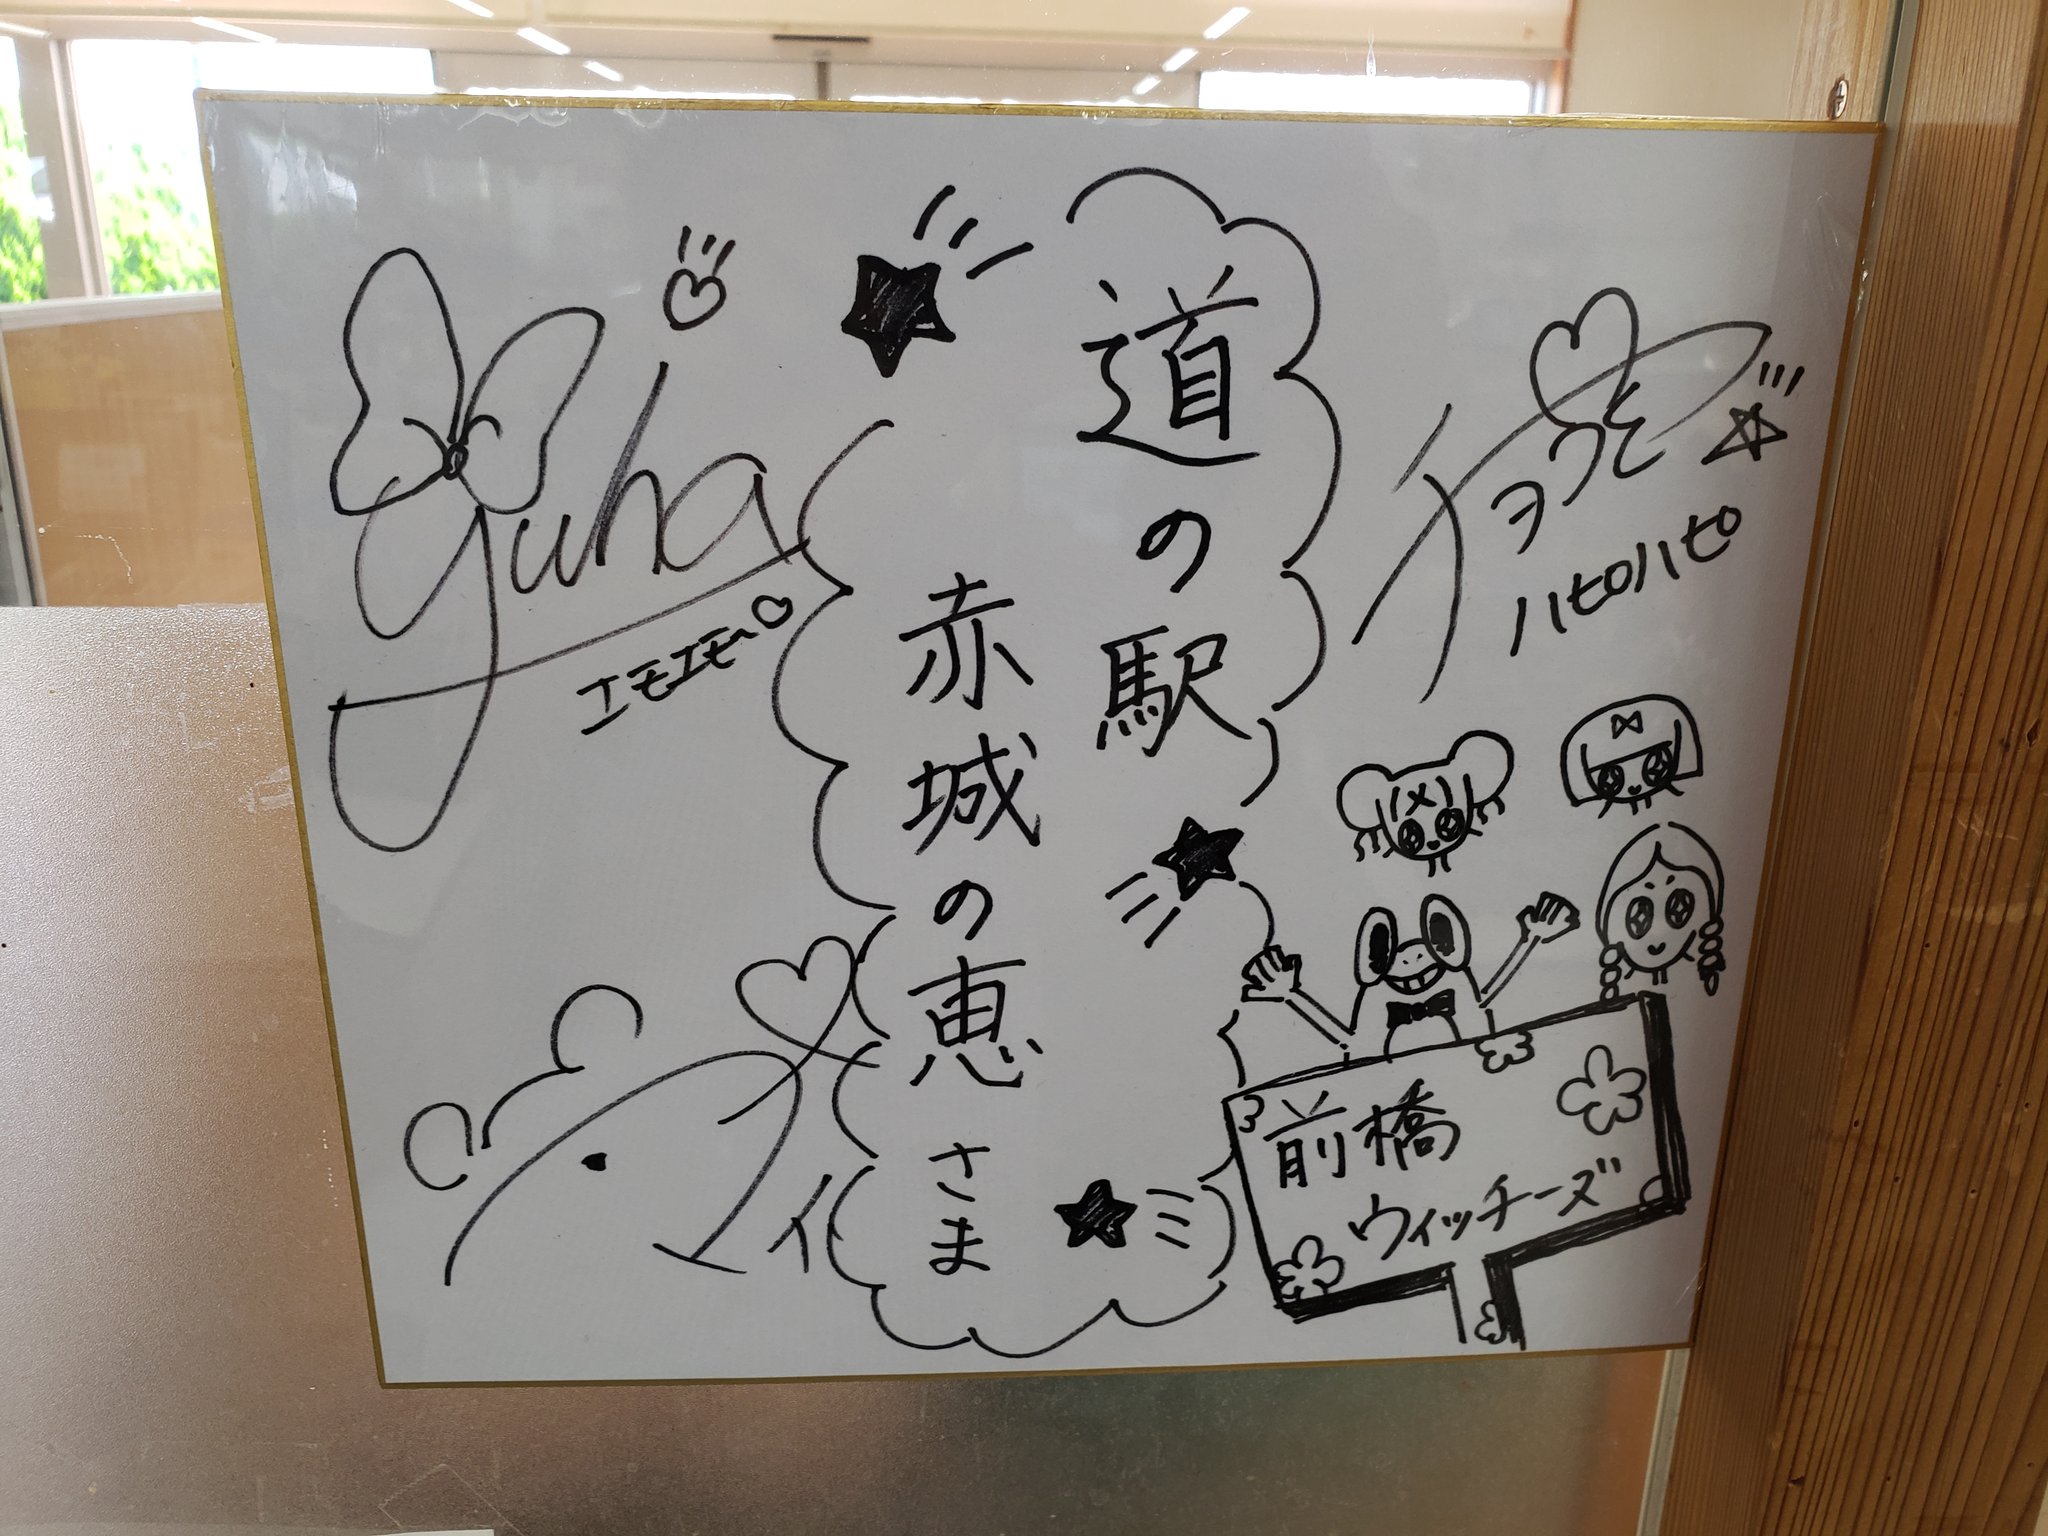 道の駅
赤城の恵
さま
yuha
エモエモ〜
チョコ
ハピハピ
マイ
前橋
ウィッチーズ